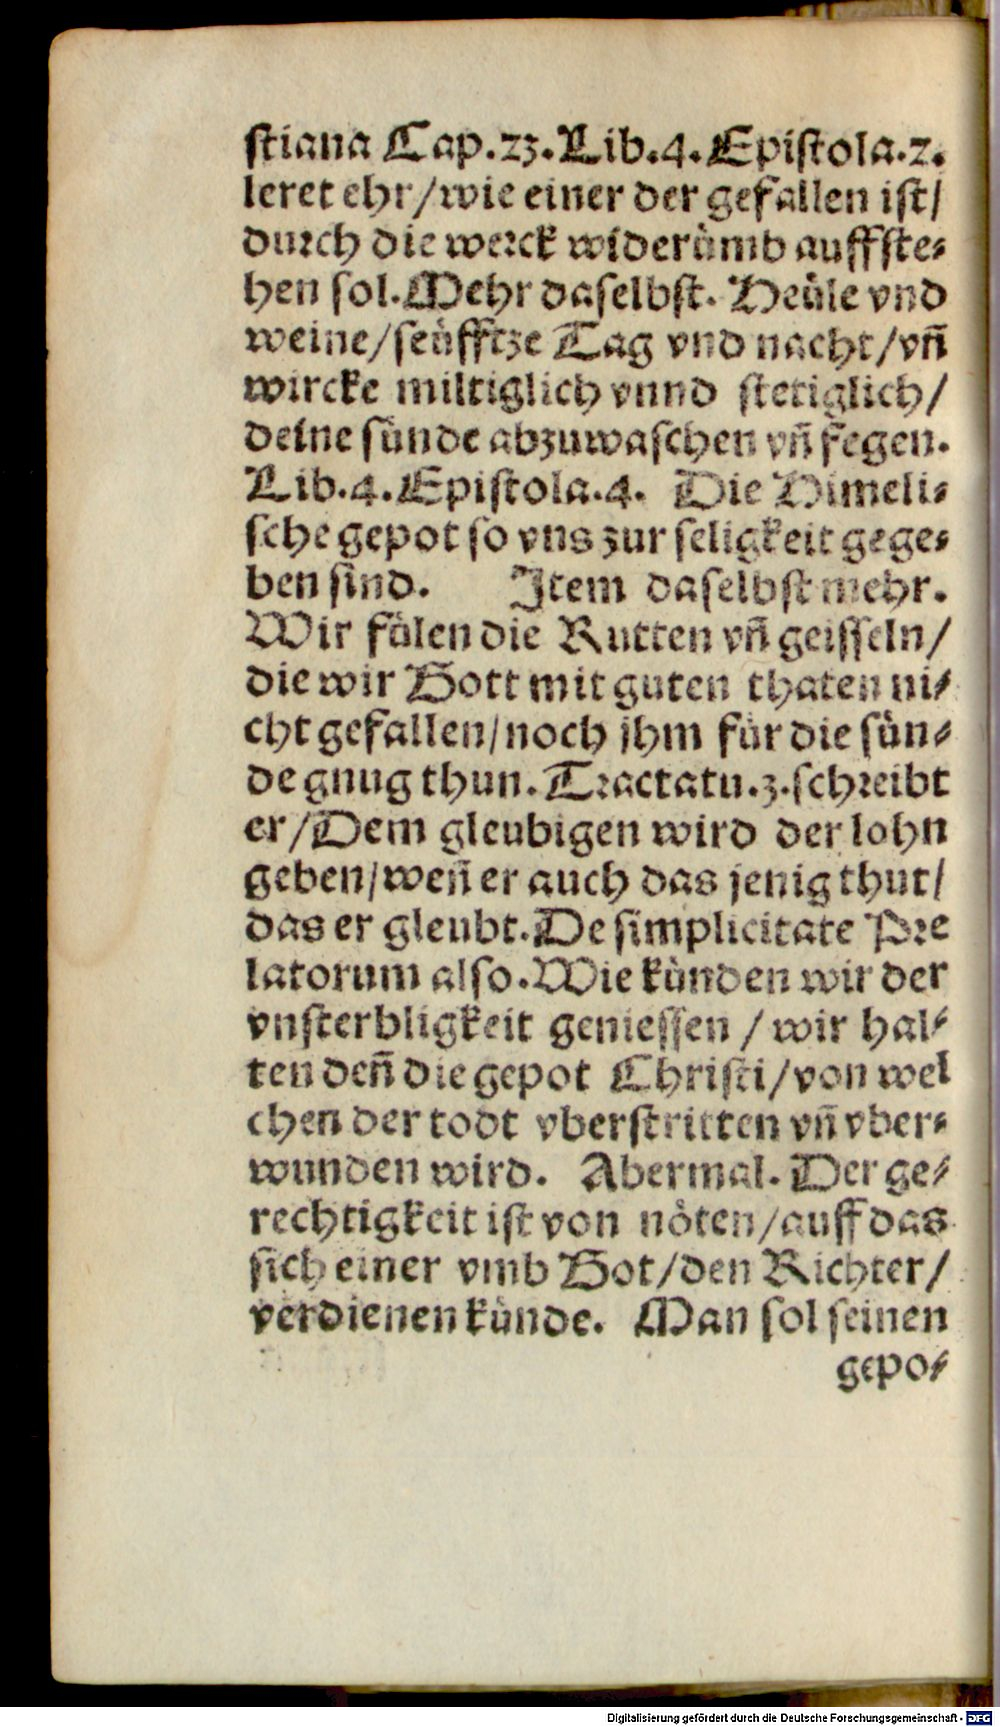 ſtiana Cap.23.Lib.4.Epiſtola.2.
leret ehr/wie einer der gefallen iſt/
durch die werck widerům̈b auffſte⸗
hen ſol.Mehr daſelbſt. Heüle vnd
weine/ſeüfftze Tag vnd nacht/vn̄
wircke miltiglich vnnd ſtetiglich/
deine ſünde abzuwaſchen vn̄ fegen.
Lib.4.Epiſtola.4. Die Himeli⸗
ſche gepot ſo vns zur ſeligkeit gege⸗
ben ſind. Item daſelbſt mehr.
Wir fülen die Rutten vn̄ geiſſeln/
die wir Gott mit guten thaten ni⸗
cht gefallen/noch jhm für die ſün⸗
de gnug thun.Tractatu.3.ſchreibt
er/Dem gleubigen wird der lohn
geben/wen̄ er auch das jenig thut/
das er gleubt.De ſimplicitate Pre
latorum alſo.Wie künden wir der
vnſterbligkeit genieſſen / wir hal⸗
ten den̄ die gepot Chriſti/von wel
chen der todt vberſtritten vn̄ vber⸗
wunden wird. Abermal. Der ge⸗
rechtigkeit iſt von nöten/auff das
ſich einer vmb Got/den Richter/
verdienen künde. Man ſol ſeinen
gepo⸗
Digitalisierung gefördert durch die Deutsche Forschungsgemeinschaft - DFG